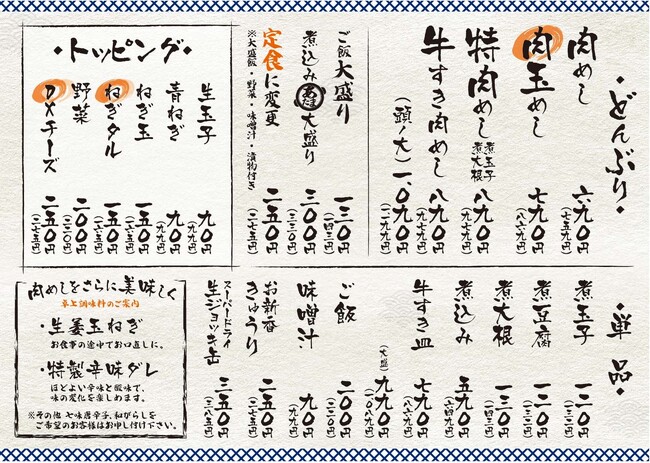 ・どんぶり・
肉めし 六九〇円
(七五九円)
肉玉めし 七九〇円
(八六九円)
特肉めし 煮玉子 煮大根 八九〇円
(九七九円)
牛すき肉めし 八九〇円
(九七九円)
(頭ノ大) 一、〇九〇円
(一、一九九円)
ご飯大盛り 一三〇円
(一四三円)
煮込みあたま大盛り 三〇〇円
(三三〇円)
定食に変更 二五〇円
(二七五円)
※大盛飯・野菜・味噌汁・漬物付き
・トッピング・
生玉子 九〇円
(九九円)
青ねぎ 九〇円
(九九円)
ねぎ玉 一五〇円
(一六五円)
ねぎタル 一五〇円
(一六五円)
野菜 二〇〇円
(二二〇円)
DXチーズ 二五〇円
(二七五円)
・単品・
煮玉子 一二〇円
(一三二円)
煮豆腐 一二〇円
(一三二円)
煮大根 一二〇円
(一三二円)
煮込み 五九〇円
(六四九円)
牛すき皿 七九〇円
(八六九円)
(大盛) 九九〇円
(一、〇八九円)
ご飯 二〇〇円
(二二〇円)
味噌汁 九〇円
(九九円)
お新香
きゅうり 二五〇円
(二七五円)
スーパードライ
生ジョッキ缶 三五〇円
(三八五円)
肉めしをさらに美味しく
卓上調味料のご案内
・生姜玉ねぎ
お食事の途中でお口直しに。
・特製辛味ダレ
ほどよい辛味と酸味で、
味の変化を楽しめます。
※その他 七味唐辛子、和がらしを
ご希望のお客様はお申し付け下さい。